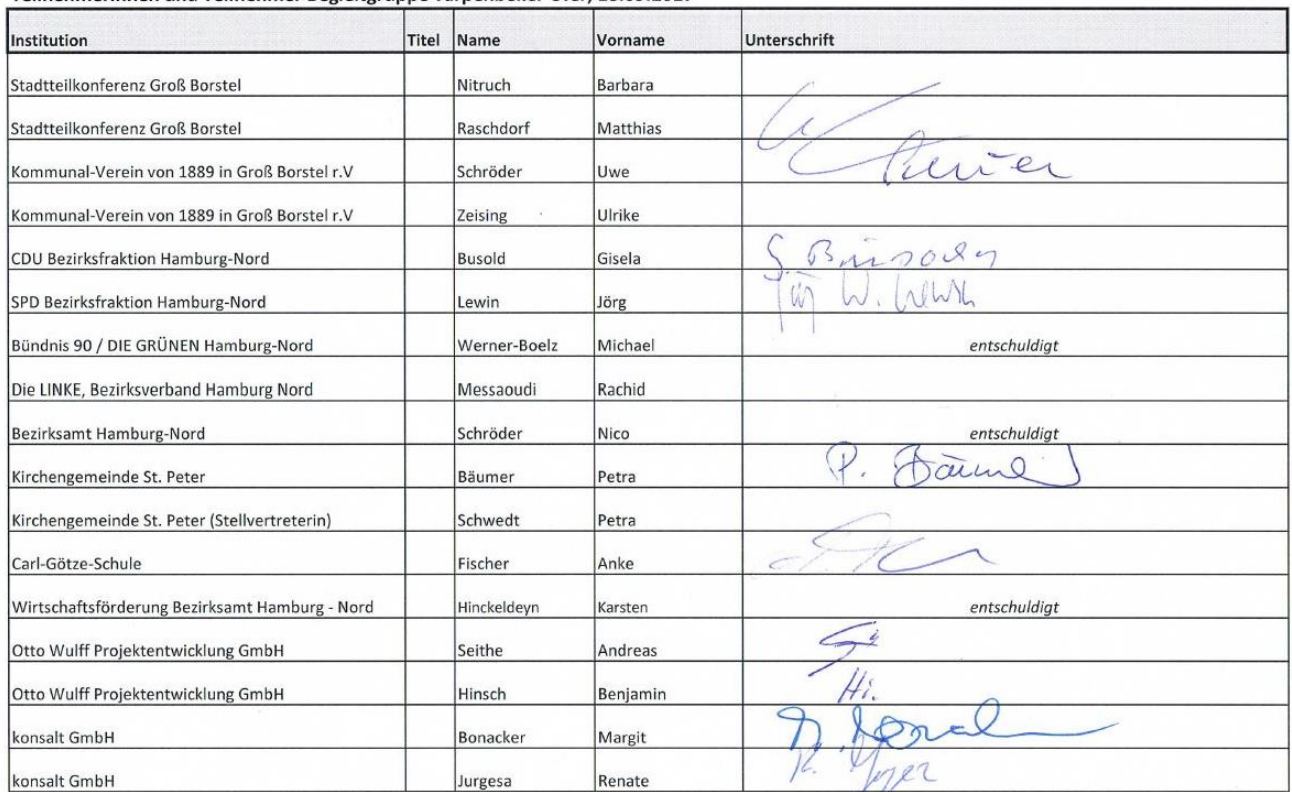 Institution Titel Name Vorname Unterschrift
Stadtteilkonferenz Groß Borstel Nitruch Barbara
Stadtteilkonferenz Groß Borstel Raschdorf Matthias
Kommunal-Verein von 1889 in Groß Borstel r.V Schröder Uwe
Kommunal-Verein von 1889 in Groß Borstel r.V Zeising Ulrike
CDU Bezirksfraktion Hamburg-Nord Busold Gisela
SPD Bezirksfraktion Hamburg-Nord Lewin Jörg W. Lewin
Bündnis 90 / DIE GRÜNEN Hamburg-Nord Werner-Boelz Michael entschuldigt
Die LINKE, Bezirksverband Hamburg Nord Messaoudi Rachid
Bezirksamt Hamburg-Nord Schröder Nico entschuldigt
Kirchengemeinde St. Peter Bäumer Petra P. Bäumer
Kirchengemeinde St. Peter (Stellvertreterin) Schwedt Petra
Carl-Götze-Schule Fischer Anke
Wirtschaftsförderung Bezirksamt Hamburg - Nord Hinckeldeyn Karsten entschuldigt
Otto Wulff Projektentwicklung GmbH Seithe Andreas
Otto Wulff Projektentwicklung GmbH Hinsch Benjamin Hi.
konsalt GmbH Bonacker Margit
konsalt GmbH Jurgesa Renate